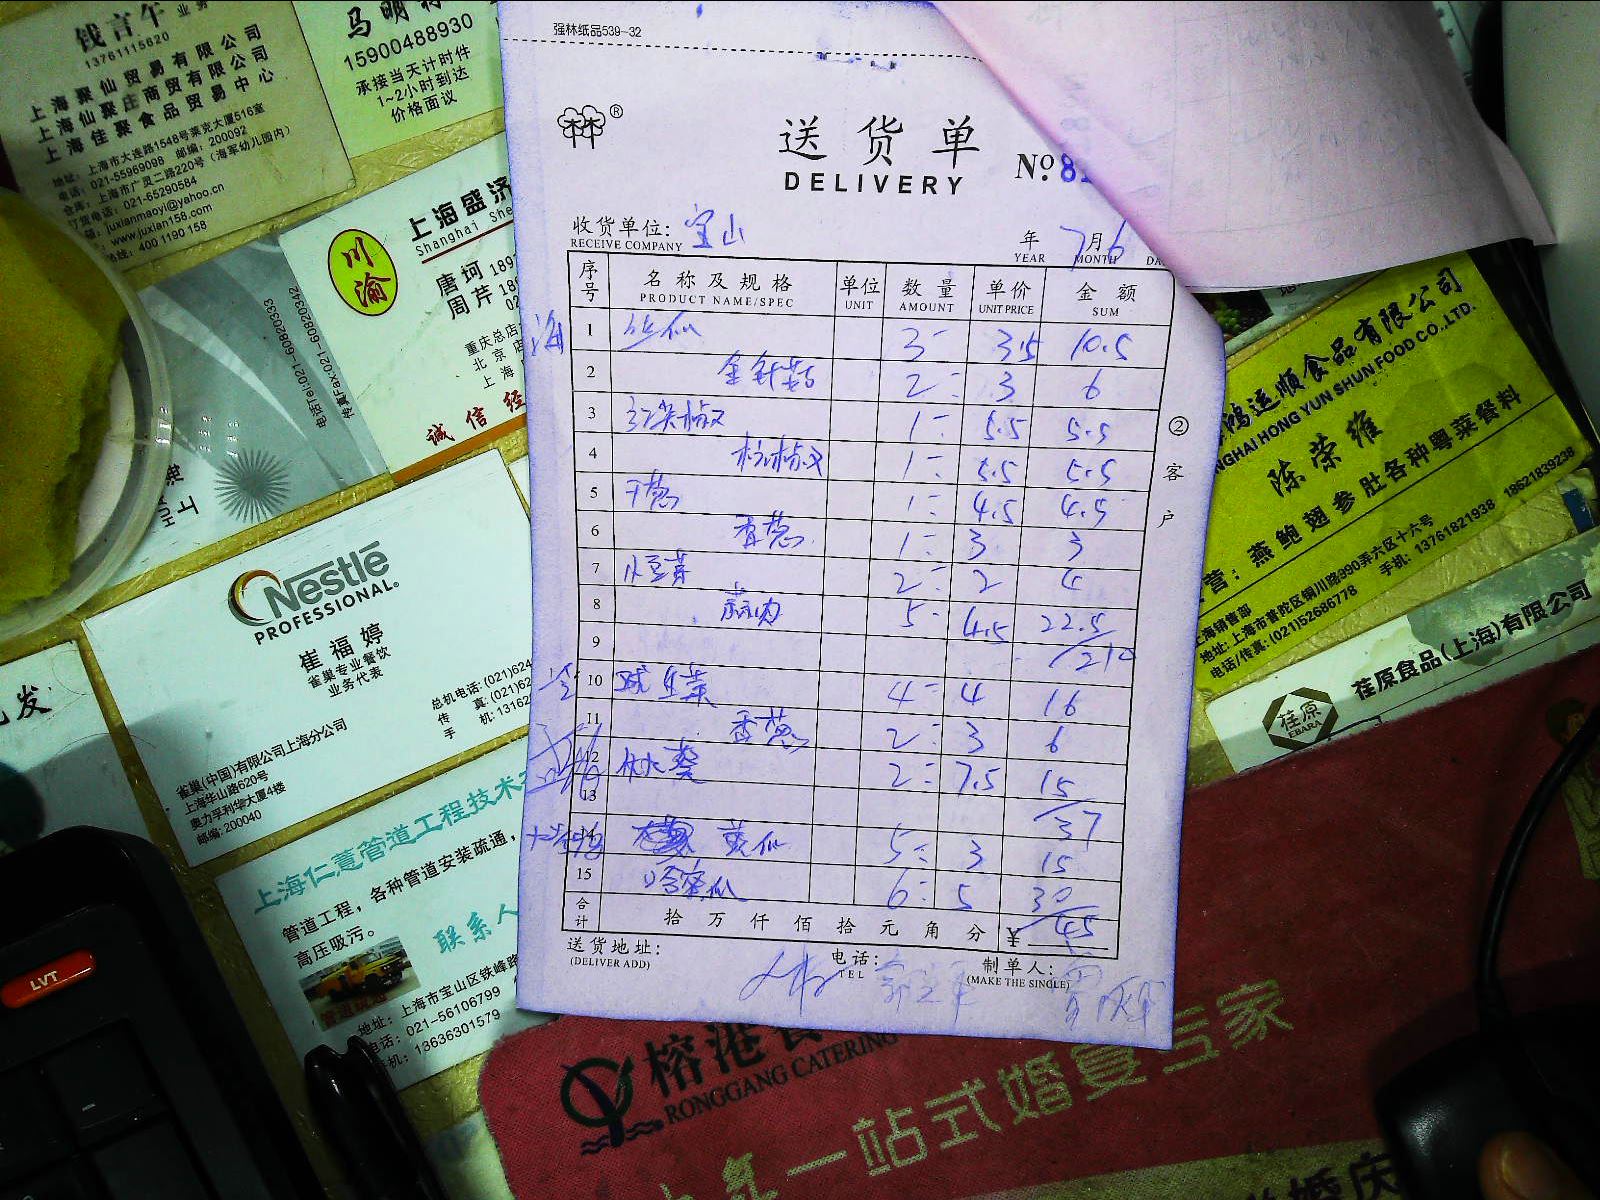 钱言午 业务
13761115620
上海聚仙贸易有限公司
上海仙聚庄商贸有限公司
上海佳聚食品贸易中心
地址: 上海市大连路1548号莱克大厦516室
电话: 021-55969098 邮编: 200092
仓库: 上海市广灵二路220号 (海军幼儿园内)
订货电话: 021-65290584
juxianmaoyi@yahoo.cn
www.juxian158.com
热线: 400 1190 158
马明
15900488930
承接当天计时件
1~2小时到达
价格面议
川渝
上海盛济
Shanghai She
唐珂 189
周芹 18
重庆总店
北京店
上海
诚信经
电话Tel:021-60820333
传真Fax:021-60820342
Nestlé
PROFESSIONAL.
崔福婷
雀巢专业餐饮
业务代表
总机电话: (021)624
传 真: (021)62
手 机: 13162
雀巢(中国)有限公司上海分公司
上海华山路620号
奥力孚利华大厦4楼
邮编: 200040
发
上海仁薏管道工程技术
管道工程, 各种管道安装疏通,
高压吸污。
联系人
地址: 上海市宝山区铁峰路
电话: 021-56106799
手机: 13636301579
LVT
强林纸品539-32
林林®
送货单
DELIVERY
No 8
收货单位: 宝山
RECEIVE COMPANY
年 7月6
YEAR MONTH DA
序号 名称及规格 单位 数量 单价 金额
PRODUCT NAME/SPEC UNIT AMOUNT UNIT PRICE SUM
海 1 丝瓜 3 3.5 10.5
2 金针菇 2 3 6
3 1 5.5 5.5
4 杭椒 1 5.5 5.5
5 干葱 1 4.5 4.5
6 香葱 1 3 3
7 小豆芽 2 2 4
8 5 4.5 22.5
9
10 球生菜 4 4 16
11 香葱 2 3 6
12 秋葵 2 7.5 15
13 37
14 黄瓜 5 3 15
15 哈密瓜 6 5 30
合计 拾 万 仟 佰 拾 元 角 分 ¥ 45
送货地址: 电话: 制单人:
(DELIVER ADD) TEL (MAKE THE SINGLE)
②客户
鸿运顺食品有限公司
NGHAI HONG YUN SHUN FOOD CO.,LTD.
陈荣维
营: 燕鲍翅参肚各种粤菜餐料
上海销售部
地址: 上海市普陀区铜川路990弄六区十六号
电话/传真: (021)52686778 手机: 13761821938 18621839238
荏原
EBARA
荏原食品(上海)有限公司
榕港
RONGGANG CATERING
一站式婚宴专家
婚庆